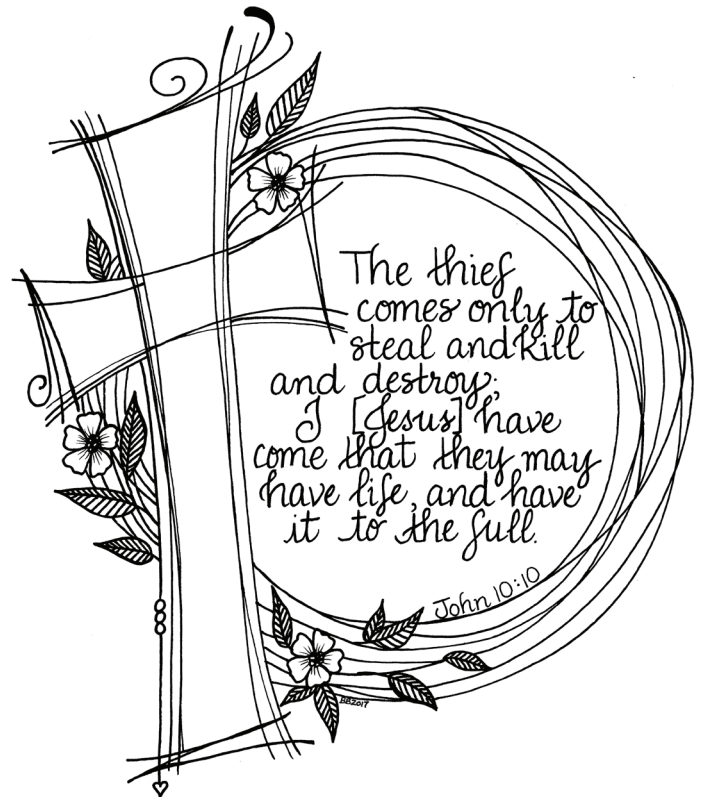 The thief
comes only to
steal and kill
and destroy;
I [Jesus] have
come that they may
have life, and have
it to the full.
John 10:10
BB2017